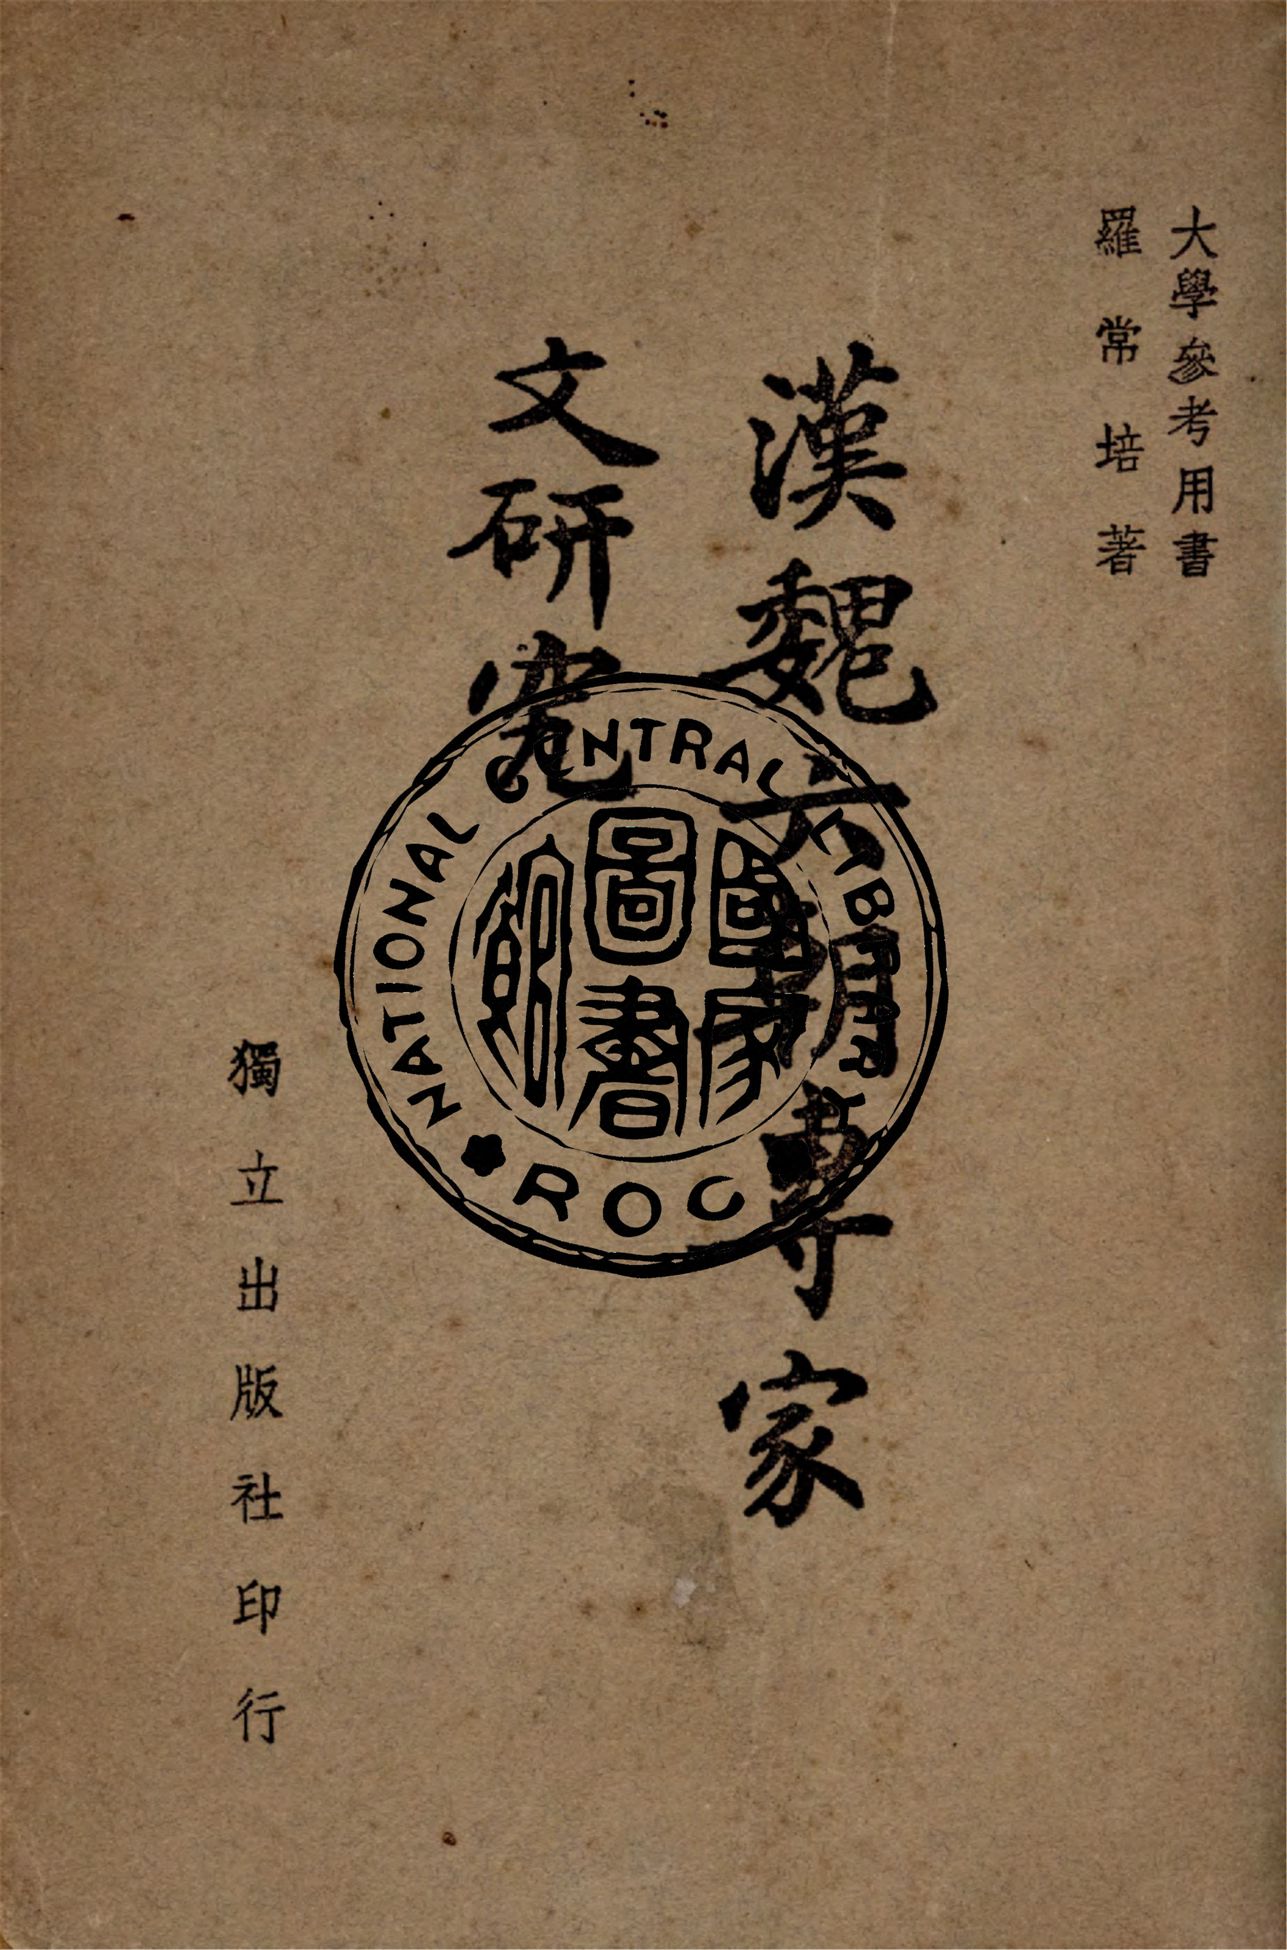 大學參考用書
羅常培著
漢魏六朝專家
文研究
NATIONAL CENTRAL LIBRARY
國家
圖書
館
ROC
獨立出版社印行